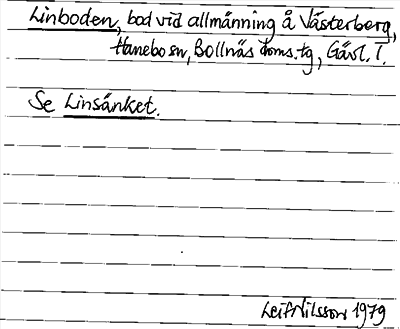 Linboden, bod vid allmänning å Västerberg,
Hanebo sn, Bollnäs doms.tg, Gävl. l.
Se Linsänket.
Leif Nilsson 1979